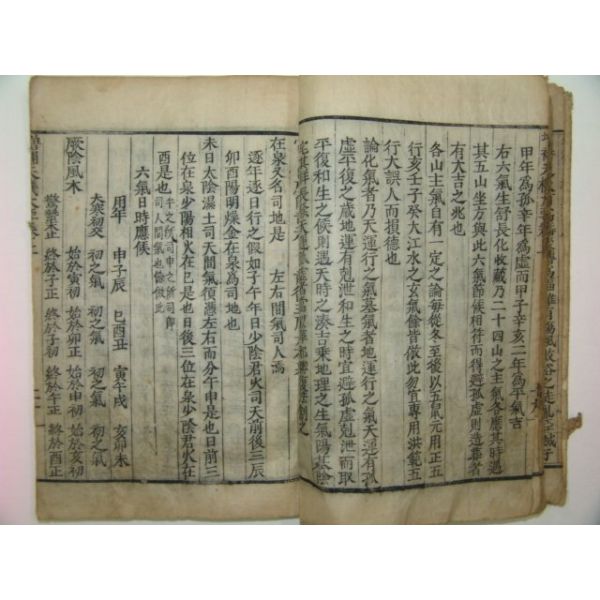 甲年為孤辛年為虛而甲子辛亥二年為平氣吉
右六氣生舒長化收藏乃二十四山之主氣各應其時遇
其五山坐方與此六氣節候相符而得避孤虛則造葬者
有大吉之兆也
各山主氣自有一定之論每從冬至後以五吕氣元用正五
行亥壬子癸大江水之玄氣餘皆倣此勿宜專用洪範五
行大誤人而損德也
論化氣者乃天運行之氣墓氣者地運行之氣天運有孤
虛平復之歲地運有剋泄和生之時宜避孤虛剋泄而取
平復和生之候則遇天時之湊吉乗地理之生氣陽基陰
在泉又名司地是 左右間氣司人焉
逐年逐日行之假如子午年日少陰君火司天前後三辰
卯酉陽明燥金在泉為司地也
未日太陰濕土司天間氣須憑左右而分午申是也日前三
位在泉少陽相火在巳是也日後三位在泉少陰君火在
酉是也
六氣日時應候
用年 申子辰 巳酉丑 寅午戌 亥卯未
大寒初交 初之氣 初之氣 初之氣 初之氣
厥陰風木 始於寅初 始於卯正 始於申初 始於亥初
驚蟄末止 終於子正 終於子初 終於午正 終於酉正